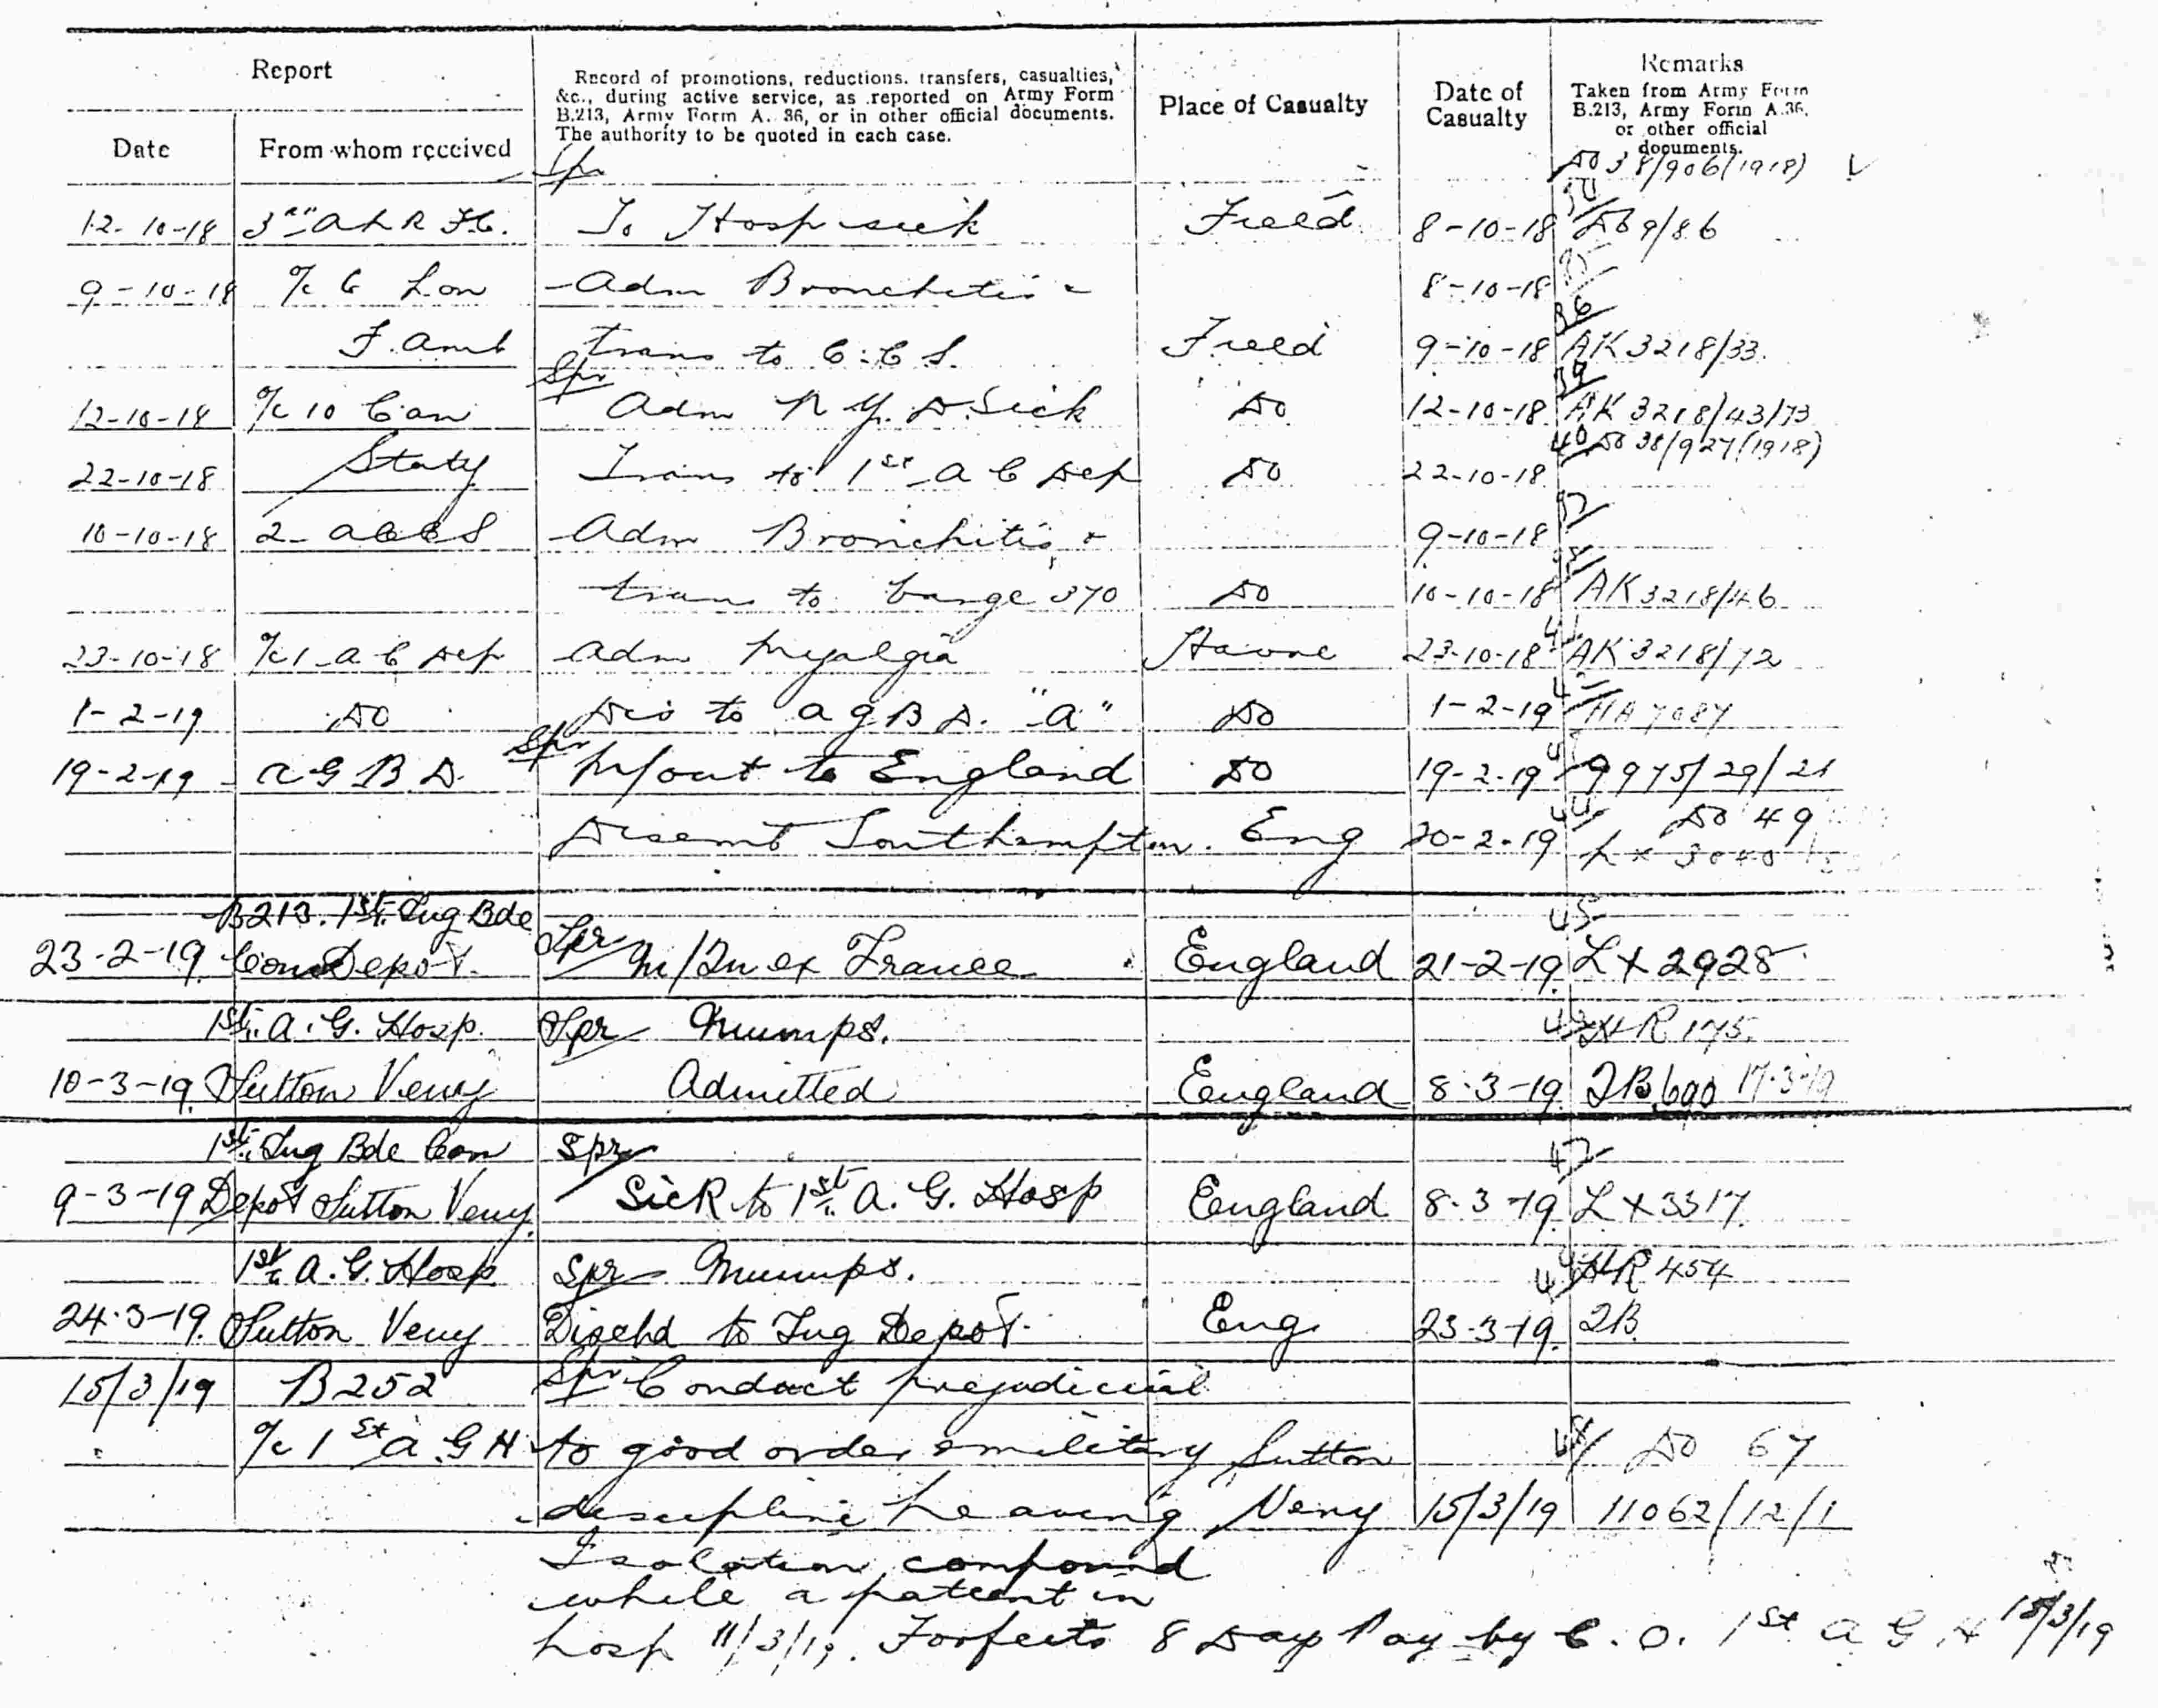 Report
Record of promotions, reductions, transfers, casualties, &c., during active service, as reported on Army Form B.213, Army Form A. 36, or in other official documents. The authority to be quoted in each case.
Place of Casualty
Date of Casualty
Remarks
Taken from Army Form B.213, Army Form A.36, or other official documents.
Date
From whom received
Spr DO 38/906(1918)
12-10-18 3rd A L R To Hosp sick Field 8-10-18 DO 9/86
9-10-18 o/c 6 Lon Adm Bronchitis 8-10-18
F. Amb trans to C.C.S. Field 9-10-18 36 AK 3218/33
12-10-18 o/c 10 Can Spr Adm N.Y.D. Sick DO 12-10-18 39 AK 3218/43/73
22-10-18 Staty Trans to 1st A C Dep DO 22-10-18 40 DO 38/927(1918)
10-10-18 2 ACCS Adm Bronchitis 9-10-18 37
trans to barge 370 DO 10-10-18 AK 3218/46
23-10-18 o/c 1 A C Dep Adm Myalgia Havre 23-10-18 41 AK 3218/72
1-2-19 DO Dis to A G B D. "A" DO 1-2-19 HA 7087
19-2-19 A G B D. Spr M/out to England DO 19-2-19 9975/29/21
Disemb Southampton. Eng 20-2-19 44 DO 49
L x 3040
B213. 1st Trg Bde 45
23-2-19. Con Depot. Spr M/In ex France England 21-2-19. L x 2928
1st. A. G. Hosp. Spr Mumps. HR 175.
10-3-19. Sutton Veny Admitted England 8-3-19. 2B. 690 17-3-19
1st. Trg Bde Con Spr 47
9-3-19 Depot Sutton Veny. Sick to 1st A. G. Hosp England 8-3-19. L x 3317.
1st A. G. Hosp. Spr Mumps. HR 454
24-3-19. Sutton Veny Dischd to Trg Depot. Eng. 23-3-19. 2B.
15/3/19 B252 Spr Conduct prejudicial
" o/c 1st A G H to good order & military Sutton DO 67
discipline Leaving Veny 15/3/19 11062/12/1
Isolation compound
while a patient in
hosp 11/3/19. Forfeits 8 Day Pay by C. O. 1st A G H 15/3/19